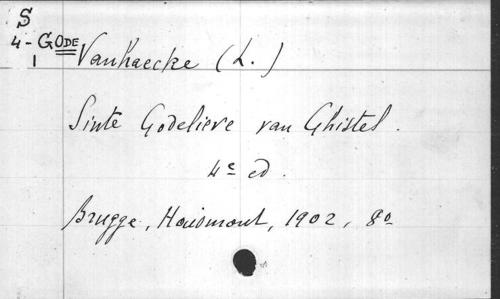 S
4-GODE
1
Vanhaecke (L.)
Sinte Godelieve van Ghistel.
4e ed.
Brugge, Houdmont, 1902, 8o